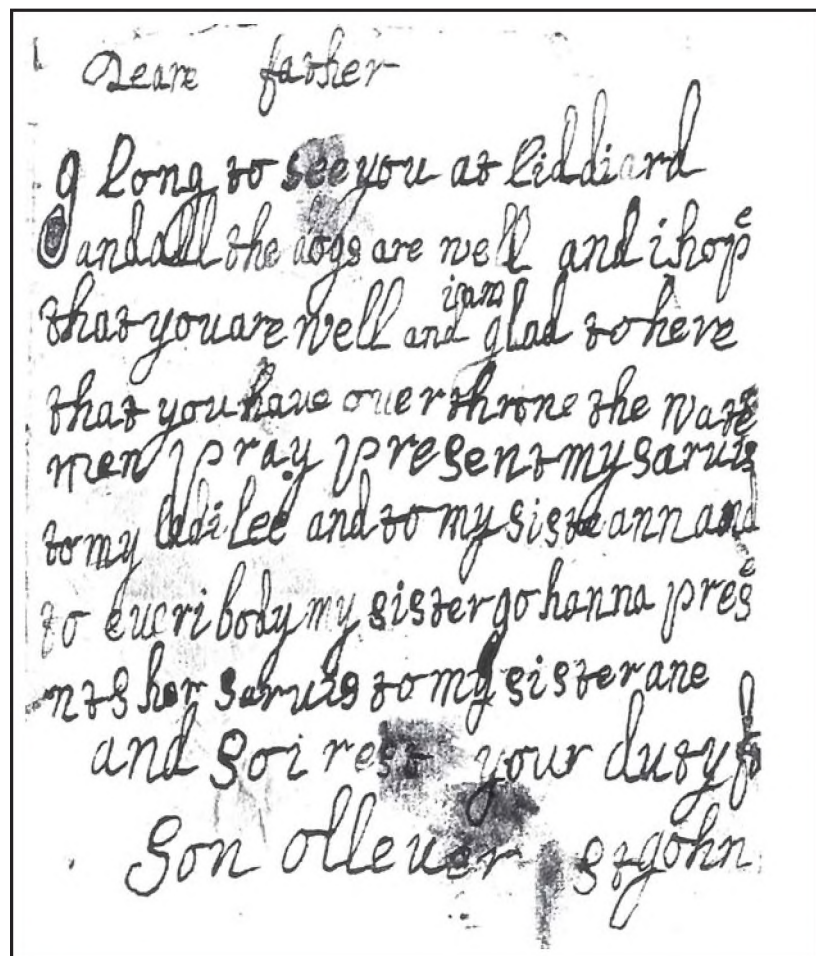 Deare father
I long to see you at liddiard
and all the dogs are well and i hope
that you are well and i am glad to here
that you haue ouerthrone the wate
men pray present my saruis
to my ladi lee and to my siste ann and
to eueribody my sister gohanna prese
nts her saruis to my sister ane
and so i rest your dutyfu
son olleuer st gohn